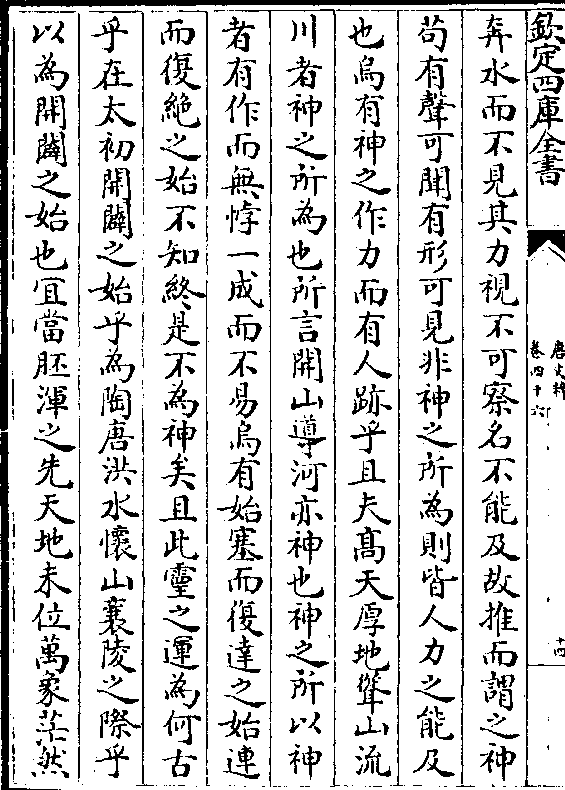 欽定四庫全書
唐文粹
卷四十六
十四
奔水而不見其力視不可察名不能及故推而謂之神
苟有聲可聞有形可見非神之所為則皆人力之能及
也烏有神之作力而有人跡乎且夫髙天厚地聳山流
川者神之所為也所言開山導河亦神也神之所以神
者有作而無悖一成而不易烏有始塞而復達之始連
而復絶之始不知終是不為神矣且此靈之運為何古
乎在太初開闢之始乎為陶唐洪水懷山襄陵之際乎
以為開闢之始也冝當胚渾之先天地未位萬象茫然